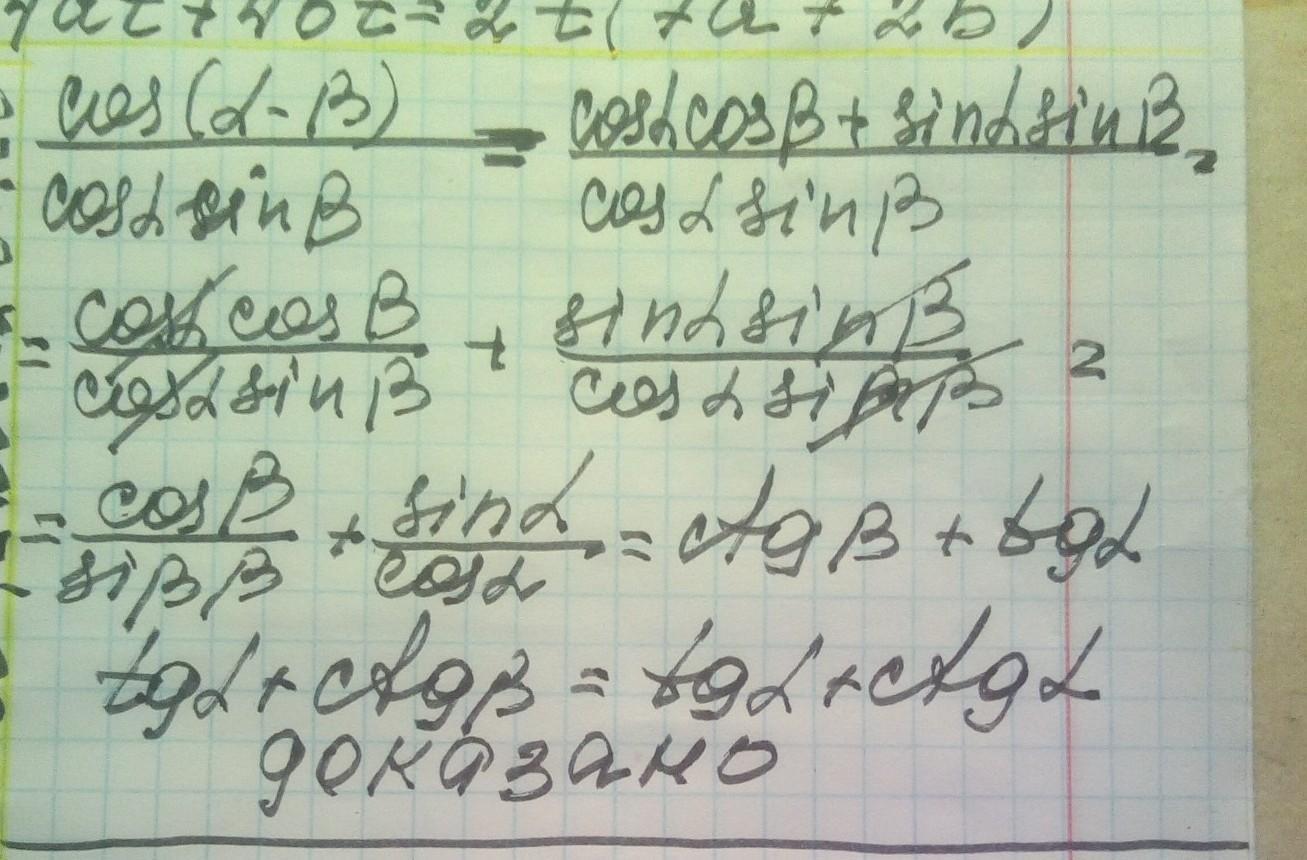 7at + 4bt = 2t(7a + 2b)
cos(α-β) / cosα sinβ = cosα cosβ + sinα sinβ / cosα sinβ =
= cosα cosβ / cosα sinβ + sinα sinβ / cosα sinβ =
= cosβ / sinβ + sinα / cosα = ctgβ + tgα
tgα + ctgβ = tgα + ctgα
доказано